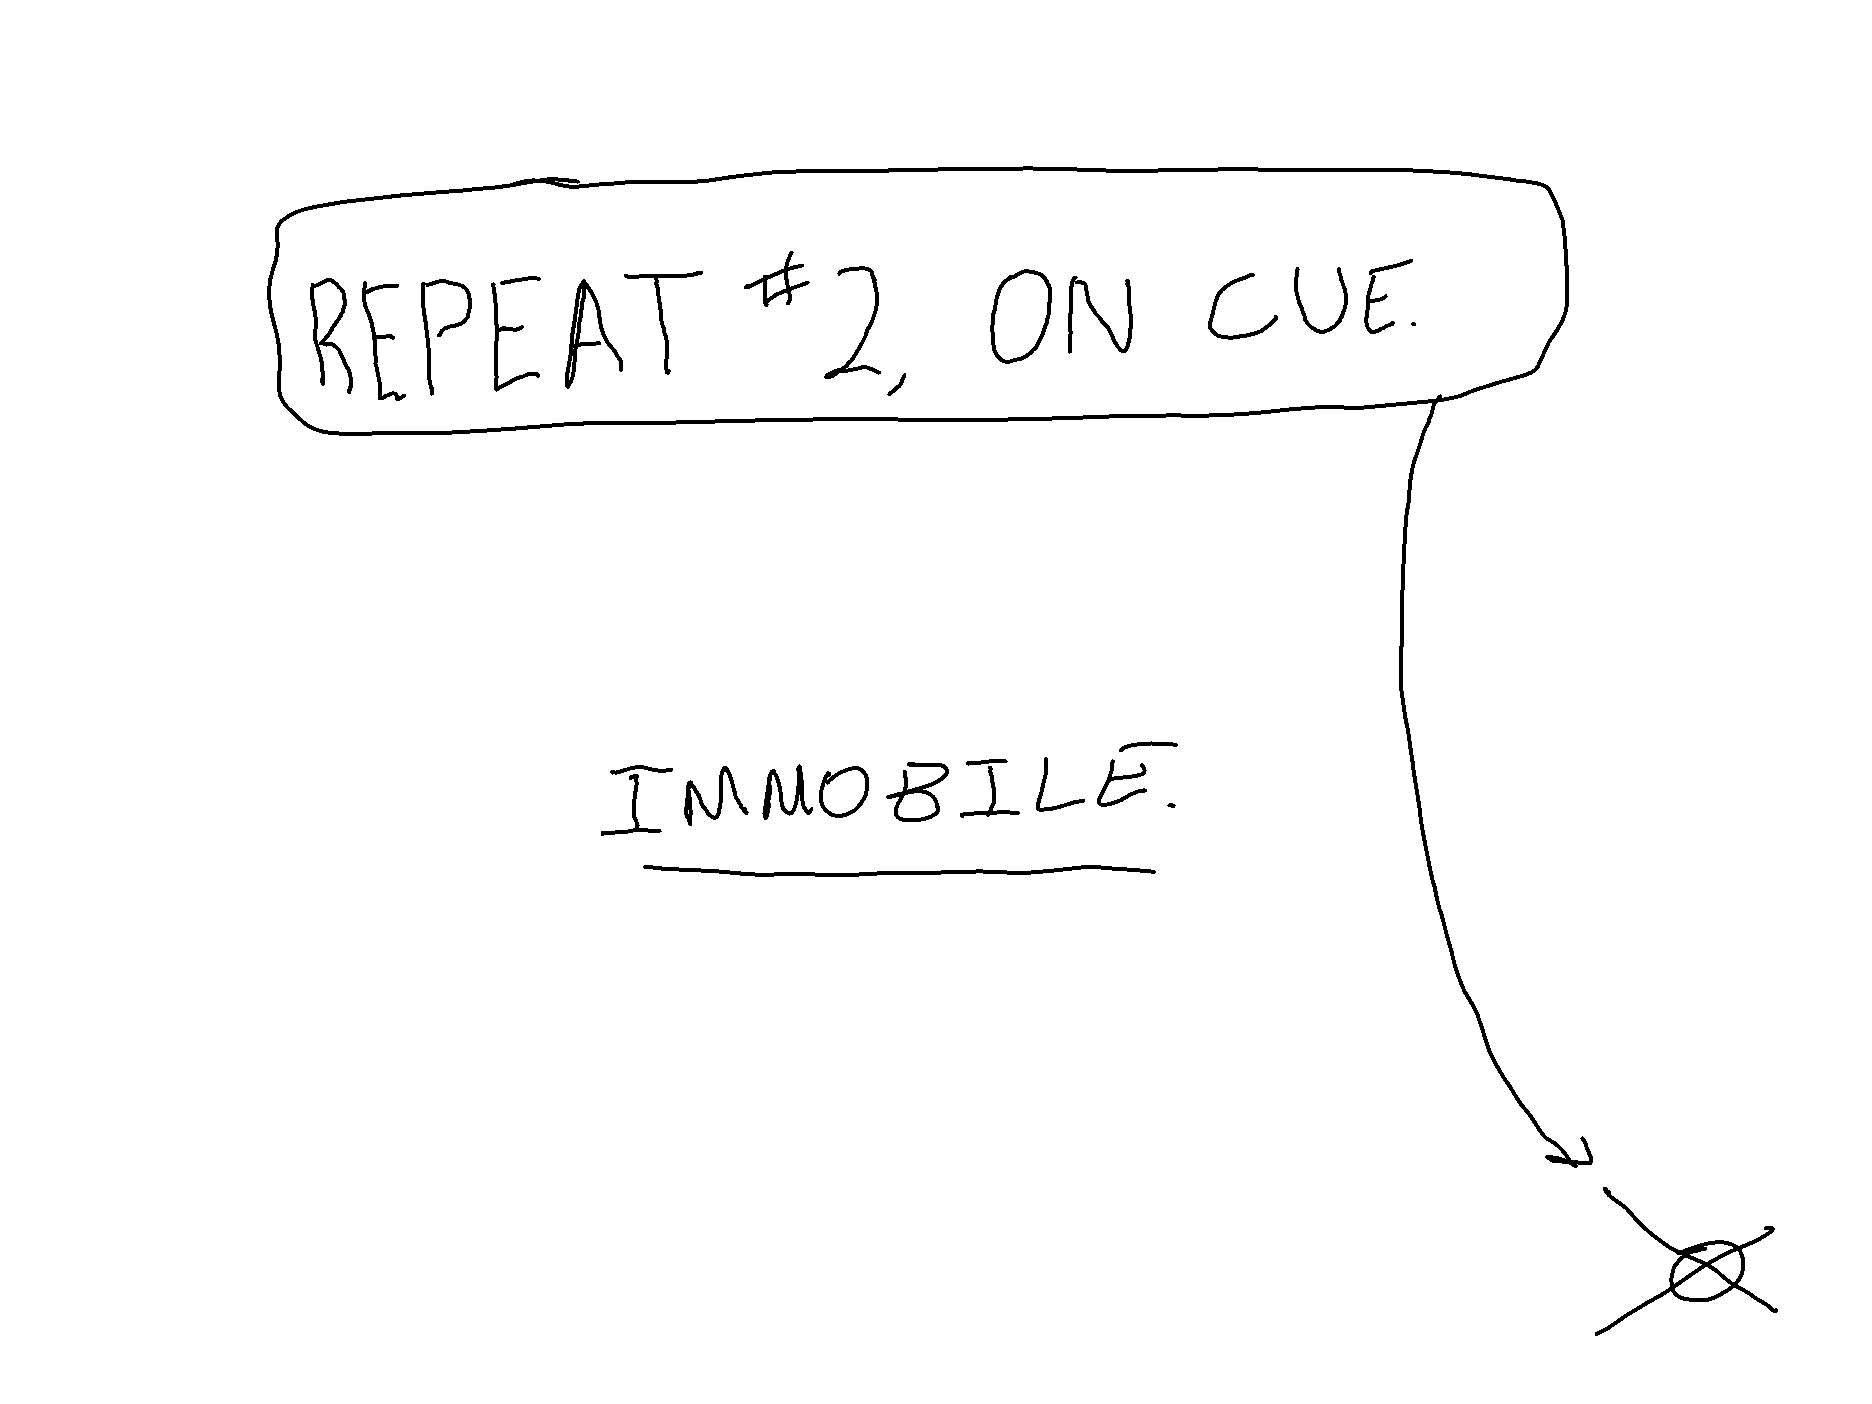 REPEAT #2, ON CUE.
IMMOBILE.